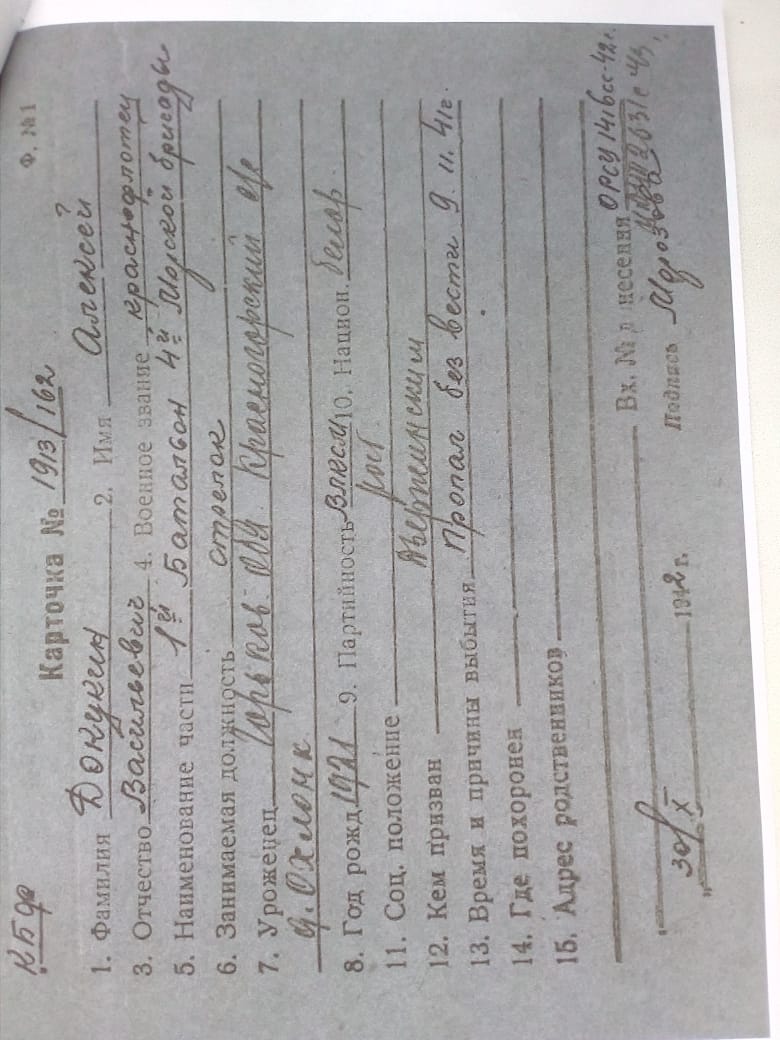 КБФ
Ф. №1
Карточка № 1913/162
1. Фамилия Докукин 2. Имя Алексей
3. Отчество Васильевич 4. Военное звание краснофлотец
5. Наименование части 1й Батальон 4й Морской бригады
6. Занимаемая должность стрелок
7. Урожецец Горьков. обл. Красногорский
д. Охлопк.
8. Год рожд 1921 9. Партийность ВЛКСМ 10. Национ.
11. Соц. положение
12. Кем призван Дзержинским
13. Время и причины выбытия Пропал без вести 9.11.41г.
14. Где похоронен
15. Адрес родственников
Вх. № донесения ОРСУ 1416сс-42г.
„30/X 1942 г. Подпись Морозова